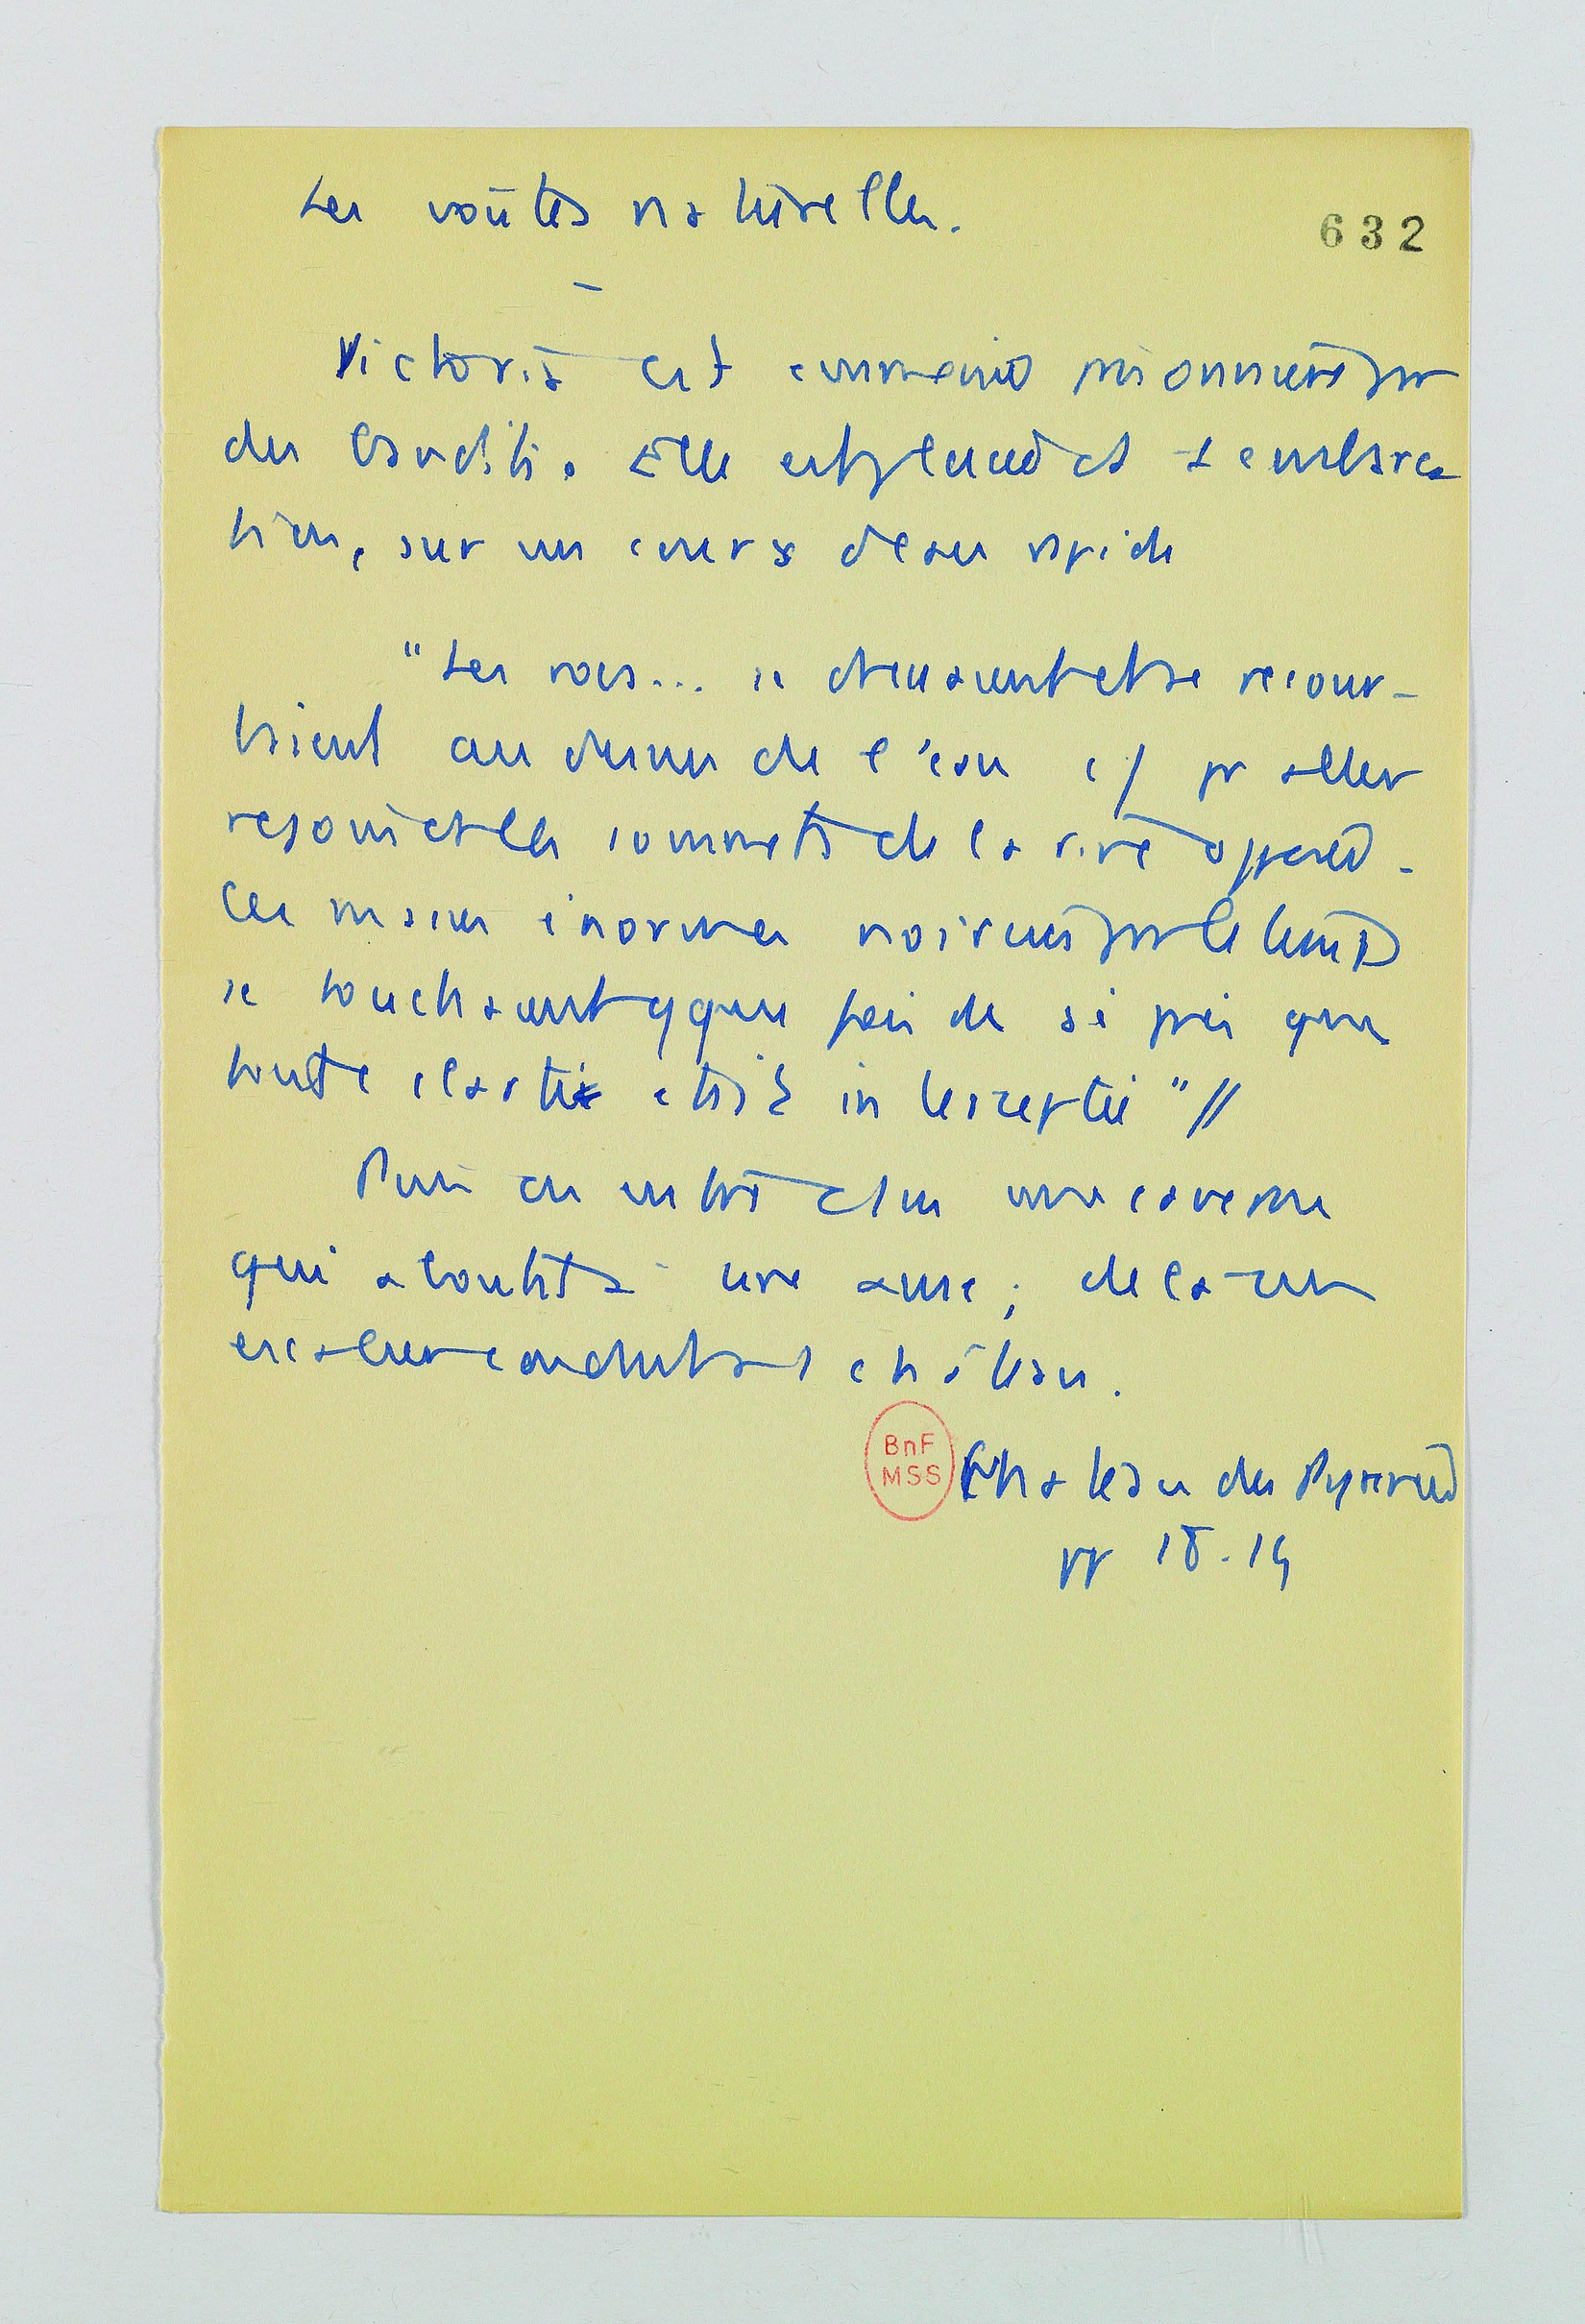 Les voûtes naturelles.
632
–
Victoria est emmenée prisonnière par
des bandits. Elle est placée ds 1 embarca
tion, sur un cours d'eau rapide
"Les rocs... se dressaient et se recour-
baient au dessus de l'eau c/ pr aller
rejoindre les sommets de la rive opposée.
Ces masses énormes noircies par le temps
se touchaient qque fois de si près que
toute clarté était interceptée" //
Puis on entre ds une caverne
qui aboutit à une anse ; de là un
escalier conduit au château.
BnF
MSS
Château des Pyrénées
pp 18.19